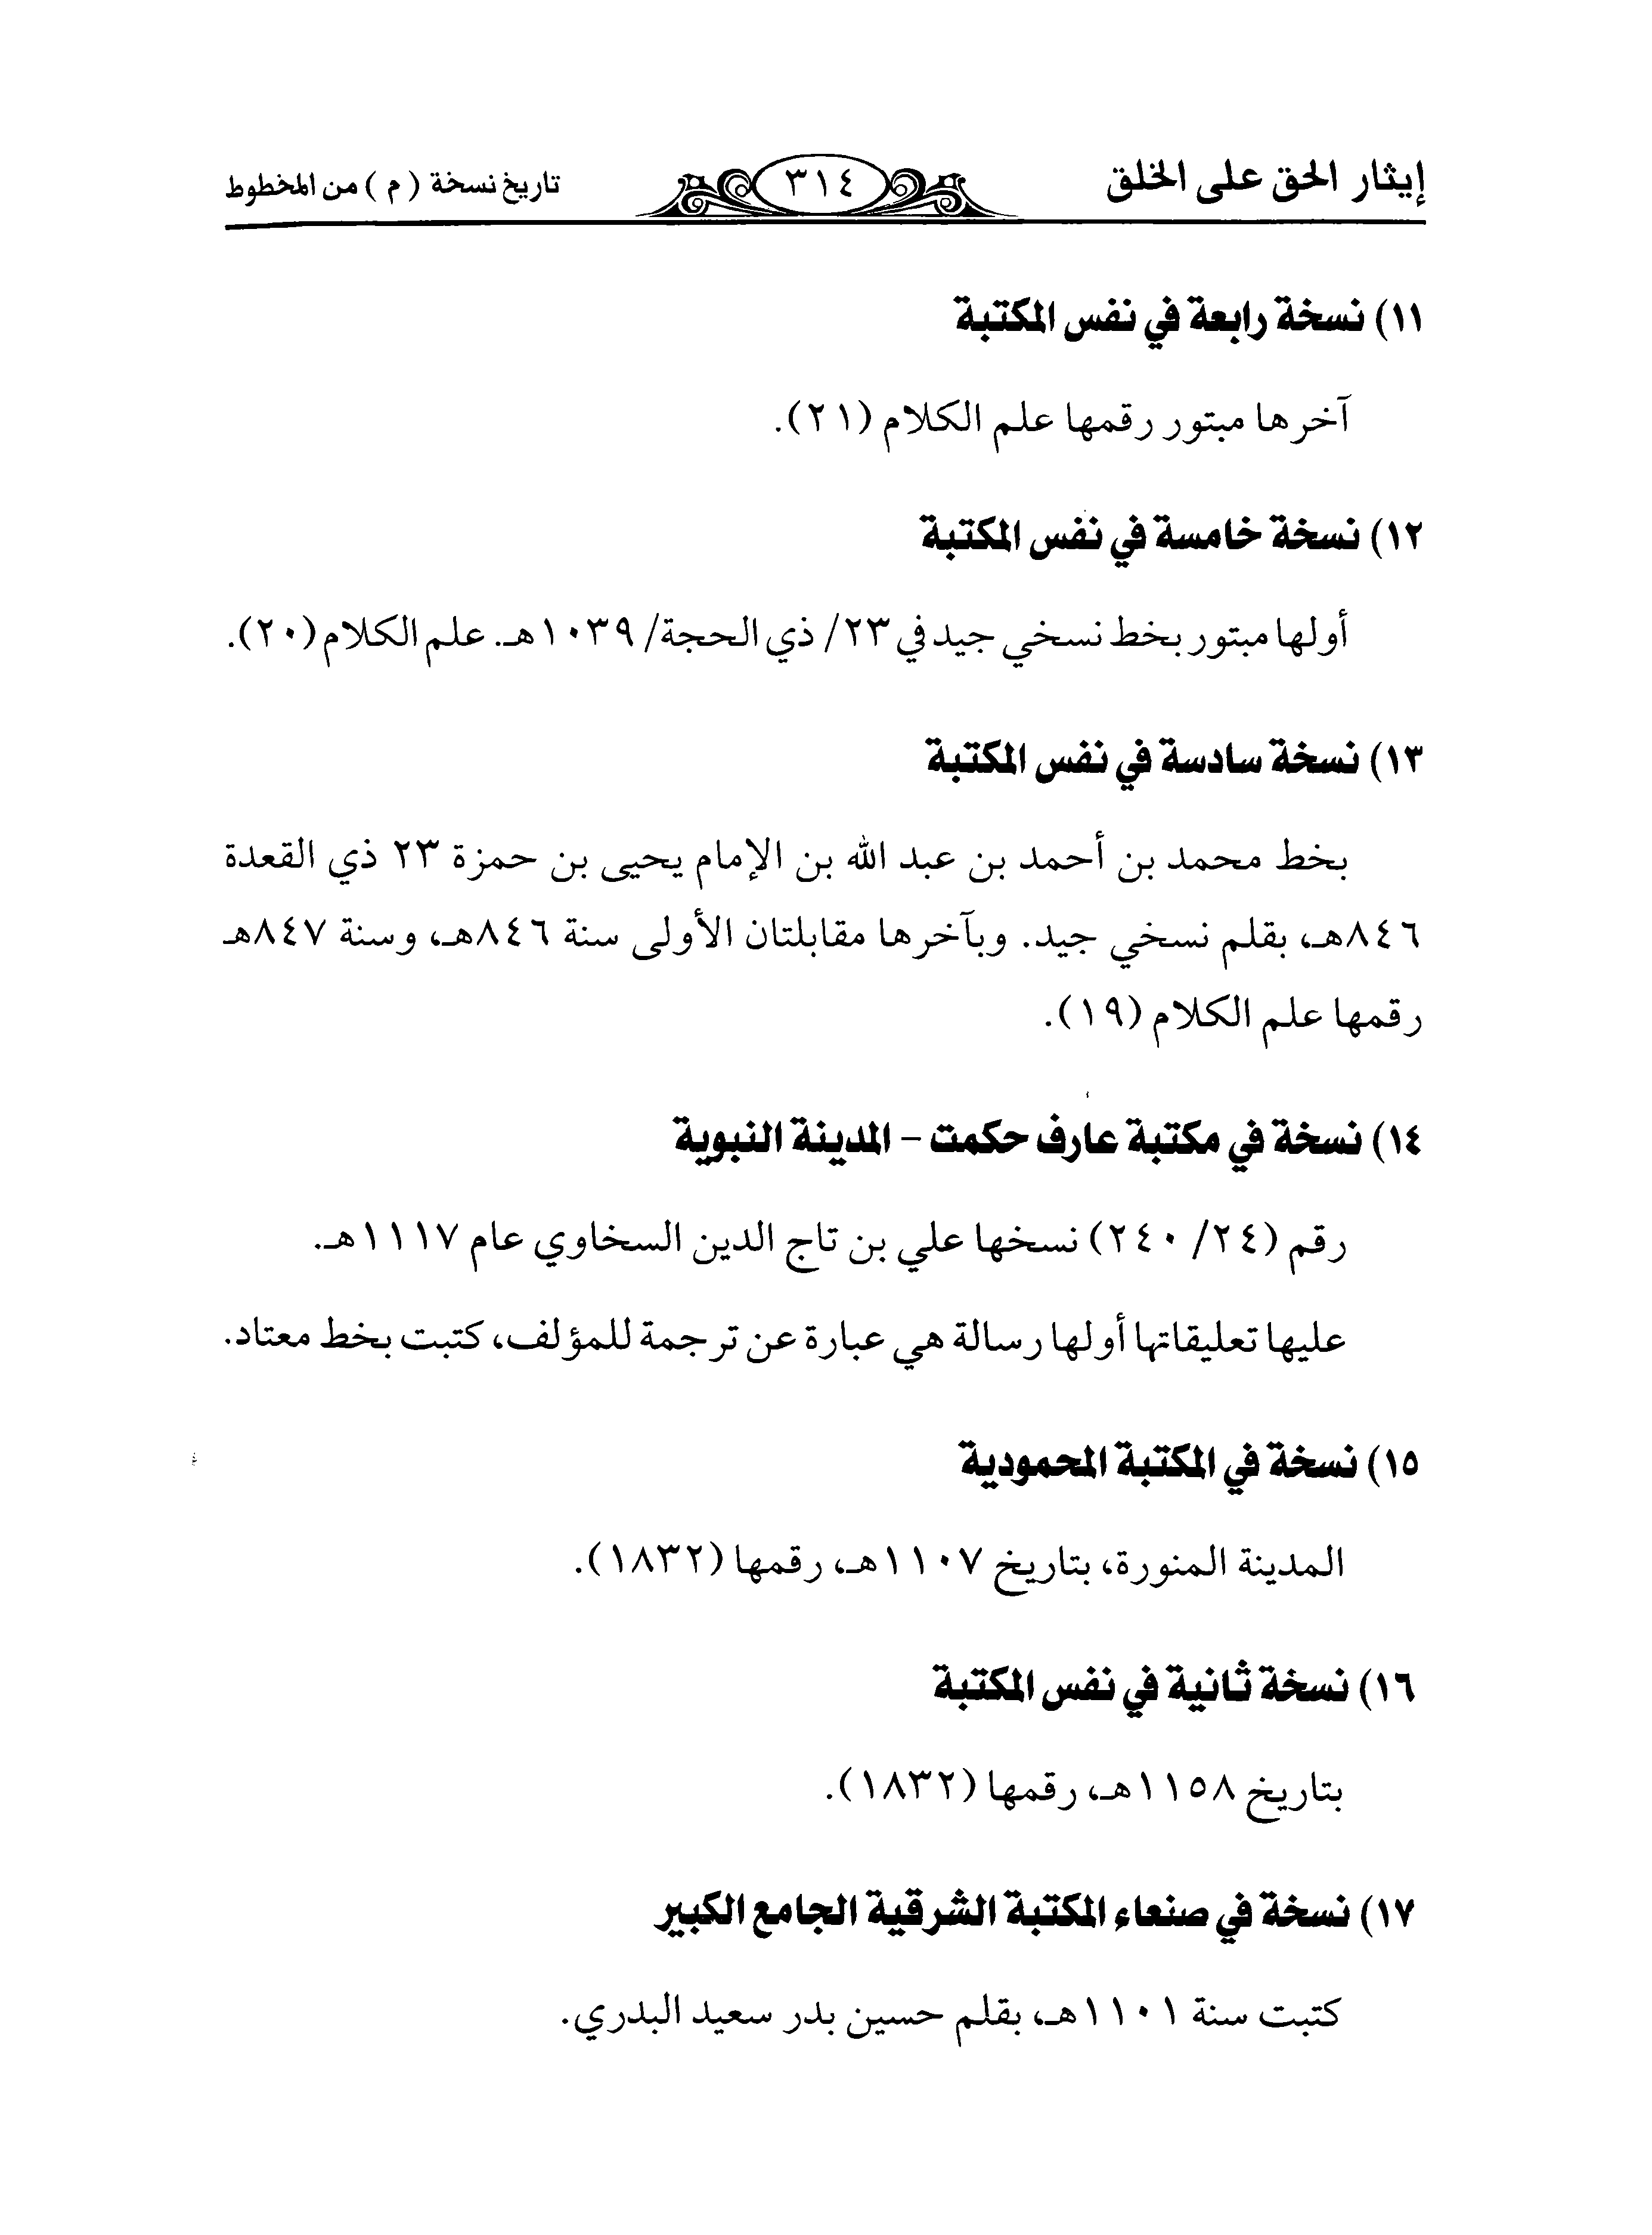 إيثار الحق على الخلق
٣١٤
تاريخ نسخة (م) من المخطوط
١١) نسخة رابعة في نفس المكتبة
آخرها مبتور رقمها علم الكلام (٢١).
١٢) نسخة خامسة في نفس المكتبة
أولها مبتور بخط نسخي جيد في ٢٣/ ذي الحجة/ ١٠٣٩هـ. علم الكلام (٢٠).
١٣) نسخة سادسة في نفس المكتبة
بخط محمد بن أحمد بن عبد الله بن الإمام يحيى بن حمزة ٢٣ ذي القعدة
٨٤٦هـ، بقلم نسخي جيد. وبآخرها مقابلتان الأولى سنة ٨٤٦هـ، وسنة ٨٤٧هـ
رقمها علم الكلام (١٩).
١٤) نسخة في مكتبة عارف حكمت – المدينة النبوية
رقم (٢٤/ ٢٤٠) نسخها علي بن تاج الدين السخاوي عام ١١١٧هـ.
عليها تعليقاتها أولها رسالة هي عبارة عن ترجمة للمؤلف، كتبت بخط معتاد.
١٥) نسخة في المكتبة المحمودية
المدينة المنورة، بتاريخ ١١٠٧هـ، رقمها (١٨٣٢).
١٦) نسخة ثانية في نفس المكتبة
بتاريخ ١١٥٨هـ، رقمها (١٨٣٢).
١٧) نسخة في صنعاء المكتبة الشرقية الجامع الكبير
كتبت سنة ١١٠١هـ، بقلم حسين بدر سعيد البدري.